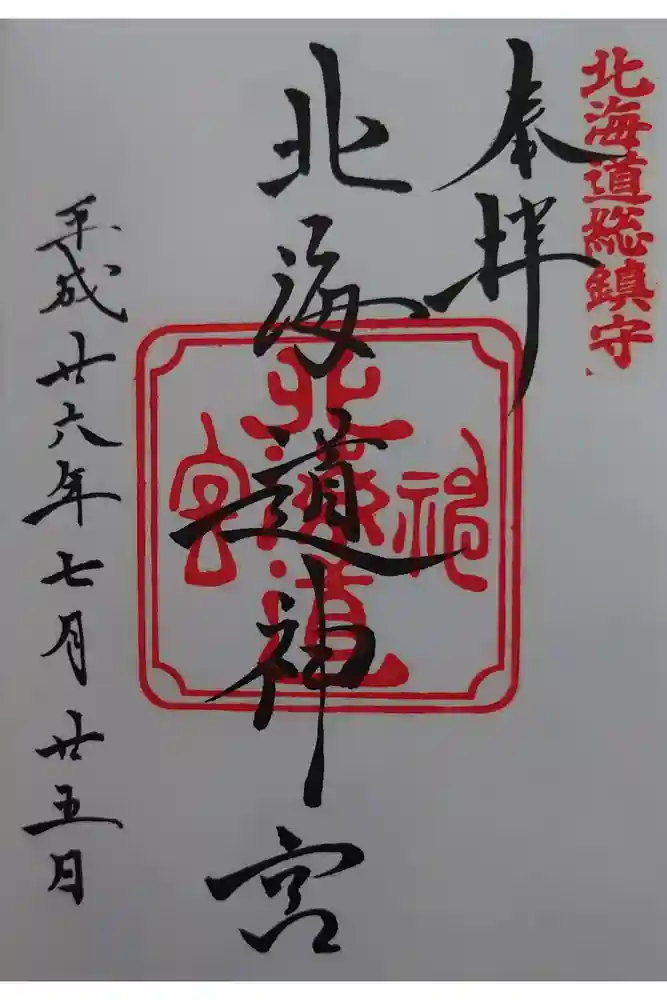 北海道総鎮守
奉拝
北海道神宮
北海道神宮
平成廿六年七月廿五日